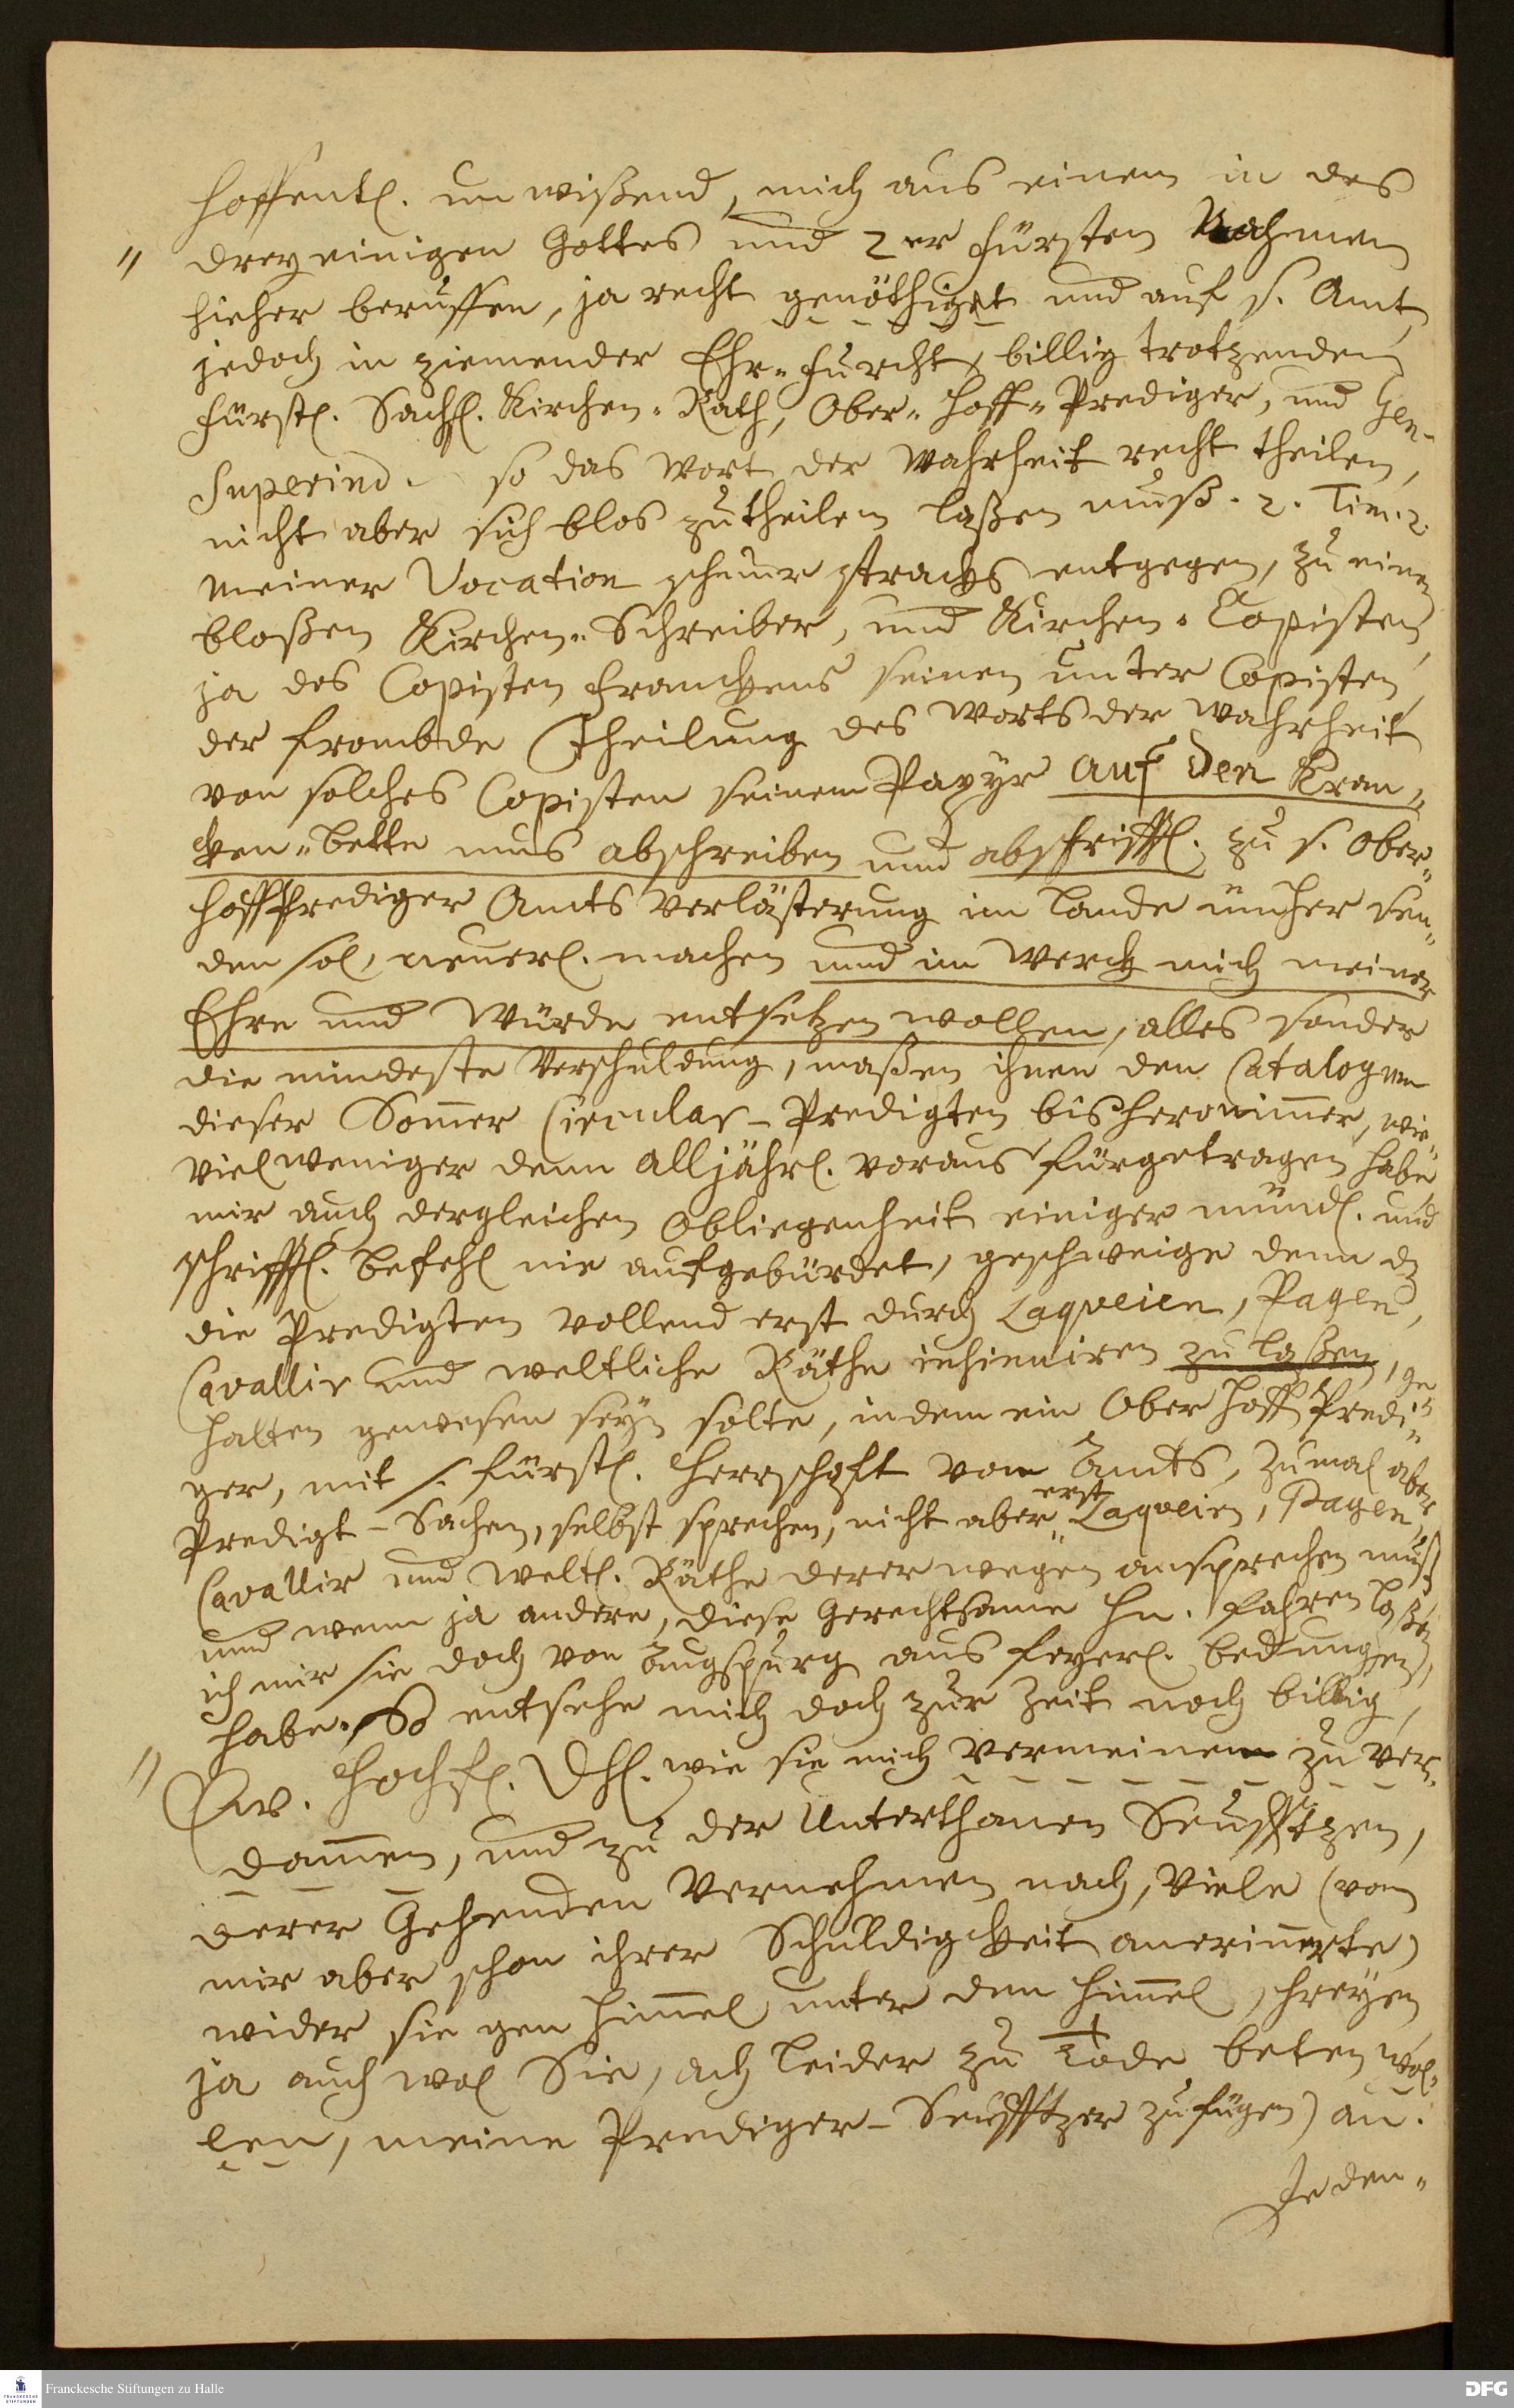 hoffentl. unwißend, mich aus einem in des
" dreyeinigen Gottes und 2er fürsten Nahmen
hieher beruffen, ja recht genöthiget und auf s. Amt,
jedoch in ziemender Ehr-furcht, billig trotzenden
fürstl. Sächs. Kirchen-Rath, Ober-Hoff-Prediger, und Gen-
Superind. so das Wort der Wahrheit recht theilen,
nicht aber sich blos zutheilen laßen muß. 2. Tim. 2.
meiner Vocation schnur stracks entgegen, zu einen
bloßen Kirchen-Schreiber, und Kirchen-Copisten,
ja des Copisten Franckens seinen unter Copisten,
der frembde Theilung des Worts der Wahrheit
von solches Copisten seinem Papÿr auf den Kran-
cken-bette mus abschreiben und abschrifftl. zu s. Ober-
hoffprediger Amts Verlästerung im Lande umher sen-
den sol, neuerl. machen und im Werck mich meiner
Ehre und Würde entsetzen wollen, alles sonder
die mindeste Verschuldung, maßen ihnen den Catalogum
dieser Sommer Circular-Predigten bishero nimmer, wie
viel weniger denn alljährl. voraus fürgetragen habe
mir auch dergleichen Obliegenheit einiger mündl. und
schrifftl. Befehl nie aufgebürdet, geschweige denn dz
die Predigten vollend erst durch Laqveien, Pagen,
Cavallir und weltliche Räthe insinuiren zu laßen, ge
halten gewesen seyn solte, indem ein Ober Hoff Predi-
ger, mit s. fürstl. Herrschafft von Amts, zumal aber
Predigt-Sachen, selbst sprechen, nicht aber erst Laqveien, Pagen,
Cavallir und weltl. Räthe derer wegen ansprechen muß
und wenn ja andere, diese Gerechtsame Hn. fahren laßen,
ich mir sie doch von Augspurg aus feyerl. bedungen
habe. So entsehe mich doch zur Zeit noch billig,
" Ew. Hochfl. Dhl. wie sie mich vermeinen zu ver-
dammen, und zu der Unterthanen Seufftzen,
derer Gehenden Vernehmen nach, Viele (von
mir aber schon ihrer Schuldigkeit anerinnerte)
wider sie gen Himmel unter den Himmel schreyen
ja auch wol Sie, ach leider zu Tode beten wol-
len, meine Prediger-Seufftzer zufügen) an.
Jeden-
Franckesche Stiftungen zu Halle
FRANCKESCHE STIFTUNGEN
DFG